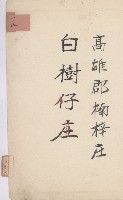 高雄郡楠梓庄
白樹仔庄